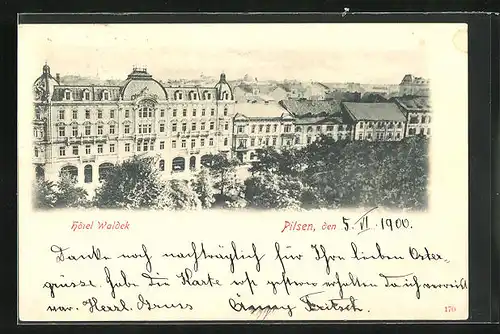 Hôtel Waldek
Pilsen, den 5. VI. 1900.
Danke noch nachträglich für Ihre lieben Oster-
grüsse. Habe die Karte erst gestern erhalten da ich verreist
war. Herzl. Gruss Fritsch
179